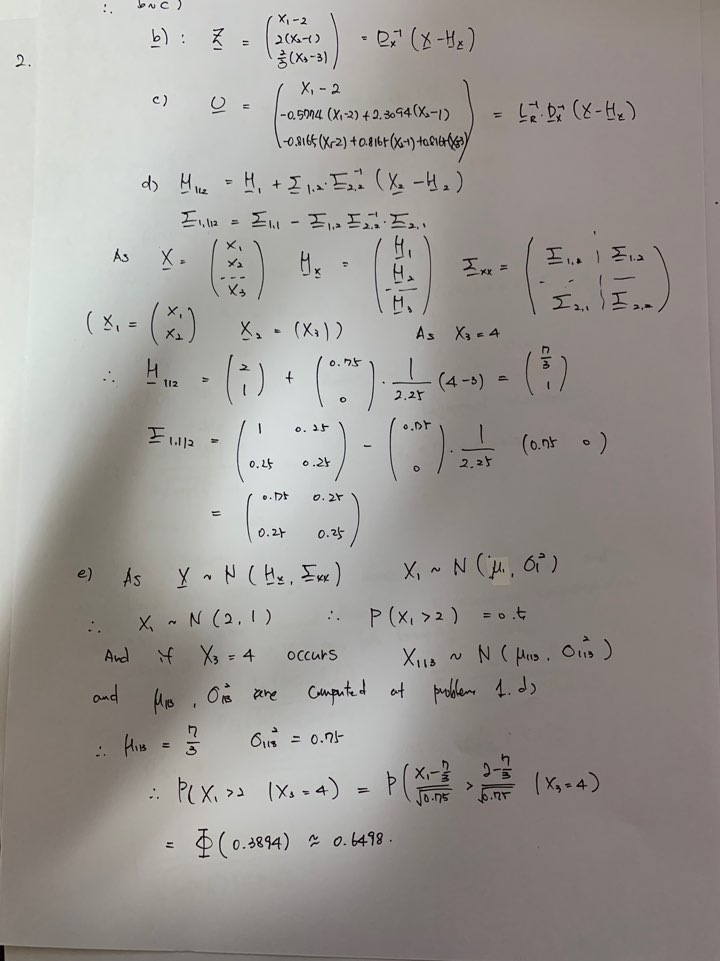 ∴ b~c)
2.
b) : Z = ( X₁-2 ; 2(X₂-1) ; ⅔(X₃-3) ) = Dx⁻¹ (X-Mx)
c) U = ( X₁-2 ; -0.5774(X₁-2)+2.3094(X₂-1) ; -0.8165(X₁-2)+0.8165(X₂-1)+0.8165(X₃-3) ) = L_R⁻¹·Dx⁻¹(X-Mx)
d) M₁|₂ = M₁ + Σ₁.₂·Σ₂.₂⁻¹ (X₂-M₂)
Σ₁.₁|₂ = Σ₁.₁ - Σ₁.₂ Σ₂.₂⁻¹·Σ₂.₁
As X = ( X₁ ; X₂ ; --- ; X₃ ) Mx = ( M₁ ; M₂ ; --- ; M₃ ) Σxx = ( Σ₁.₁ | Σ₁.₂ ; Σ₂.₁ | Σ₂.₂ )
( X₁ = ( X₁ ; X₂ ) X₂ = (X₃) ) As X₃=4
∴ M₁|₂ = ( 2 ; 1 ) + ( 0.75 ; 0 ) · 1/2.25 (4-3) = ( 7/3 ; 1 )
Σ₁.₁|₂ = ( 1 0.25 ; 0.25 0.25 ) - ( 0.75 ; 0 ) · 1/2.25 (0.75 0)
= ( 0.75 0.25 ; 0.25 0.25 )
e) As X ~ N(Mx, Σxx) X₁ ~ N(μ₁, σ₁²)
∴ X₁ ~ N(2,1) ∴ P(X₁>2) = 0.5
And if X₃=4 occurs X₁|₃ ~ N(μ₁|₃, σ₁|₃²)
and μ₁|₃, σ₁|₃² are computed at problem 1. d)
∴ μ₁|₃ = 7/3 σ₁|₃² = 0.75
∴ P(X₁>2 | X₃=4) = P( (X₁-7/3)/√0.75 > (2-7/3)/√0.75 | X₃=4)
= Φ(0.3894) ≈ 0.6498.